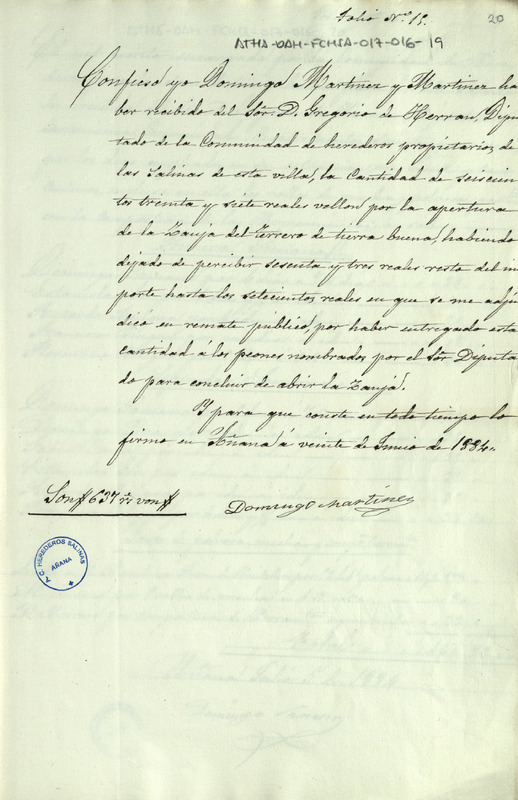 Folio Nº 19.
20
ATHA-DAH-FCHSA-017-016-19
Confieso yo Domingo Martinez y Martinez ha
ber recibido del Sor. D. Gregorio de Herran, Dipu
tado de la Comunidad de herederos propietarios de
las Salinas de esta villa, la Cantidad de seiscien
tos treinta y siete reales vellon por la apertura
de la Zanja del Terrero de tierra buena, habiendo
dejado de percibir sesenta y tres reales resto del im
porte hasta los setecientos reales en que se me adju
dicó en remate publico, por haber entregado esta
cantidad á los peones nombrados por el Sor Diputa
do para concluir de abrir la Zanja.
Y para que conste en todo tiempo lo
firmo en Añana á veinte de Junio de 1884.
Son 637 rs von
Domingo Martinez
C. HEREDEROS SALINAS
AÑANA